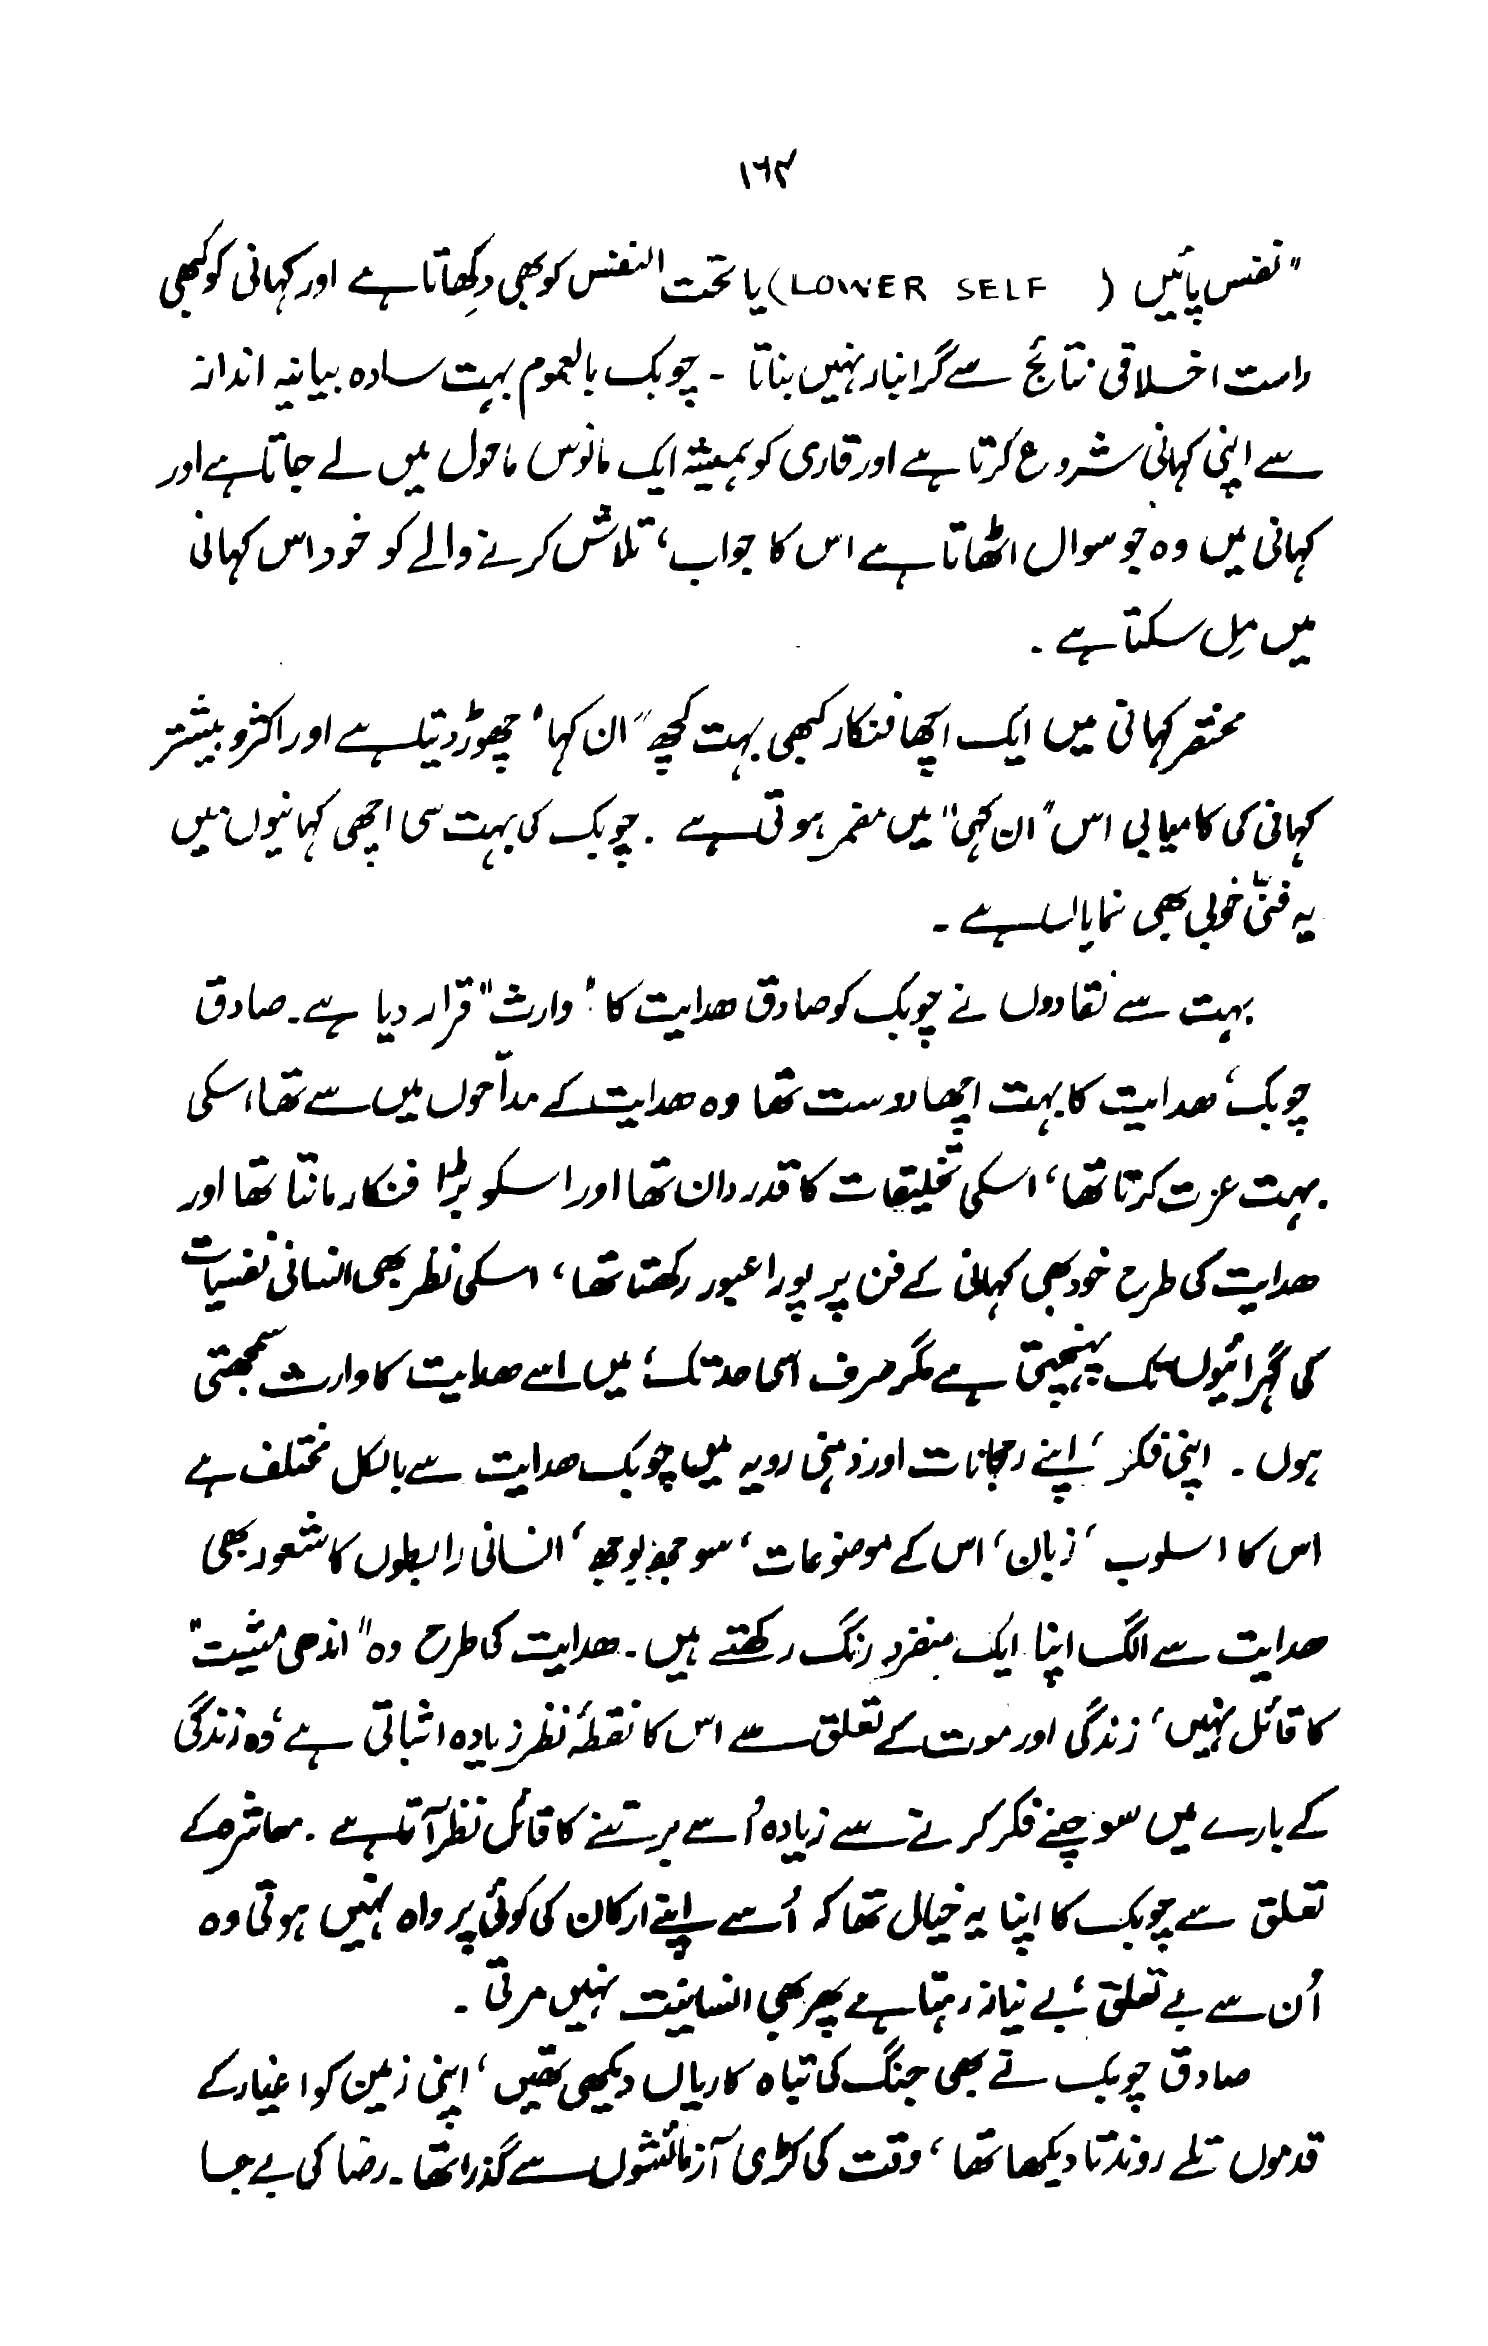 ۱۶۴
"نفس پائیں (LOWER SELF) یا تحت النفس کو بھی دکھاتا ہے اور کہانی کو کبھی
راست اخلاقی نتائج سے گرانبار نہیں بناتا ۔ چوبک بالعموم بہت سادہ بیانیہ انداز
سے اپنی کہانی شروع کرتا ہے اور قاری کو ہمیشہ ایک مانوس ماحول میں لے جاتا ہے اور
کہانی میں وہ جو سوال اٹھاتا ہے اس کا جواب، تلاش کرنے والے کو خود اس کہانی
میں مِل سکتا ہے ۔
مختصر کہانی میں ایک اچھا فنکار کبھی بہت کچھ "ان کہا" چھوڑ دیتا ہے اور اکثر و بیشتر
کہانی کی کامیابی اس "ان کہی" میں مضمر ہوتی ہے ۔ چوبک کی بہت سی اچھی کہانیوں میں
یہ فنّی خوبی بھی نمایاں ہے ۔
بہت سے نقادوں نے چوبک کو صادق ھدایت کا "وارث" قرار دیا ہے ۔ صادق
چوبک، ھدایت کا بہت اچھا دوست تھا وہ ھدایت کے مداّحوں میں سے تھا، اسکی
بہت عزت کرتا تھا، اسکی تخلیقات کا قدردان تھا اور اسکو بڑا فنکار مانتا تھا اور
ھدایت کی طرح خود بھی کہانی کے فن پر پورا عبور رکھتا تھا، اسکی نظر بھی انسانی نفسیات
کی گہرائیوں تک پہنچتی ہے مگر صرف اسی حد تک، میں اسے ھدایت کا وارث سمجھتی
ہوں ۔ اپنی فکر، اپنے رجحانات اور ذہنی رویہ میں چوبک ھدایت سے بالکل مختلف ہے
اس کا اسلوب، زبان، اس کے موضوعات، سوجھ بوجھ، انسانی رابطوں کا شعور بھی
ھدایت سے الگ اپنا ایک منفرد رنگ رکھتے ہیں ۔ ھدایت کی طرح وہ "اندھی مشیت"
کا قائل نہیں، زندگی اور موت کے تعلق سے اس کا نقطۂ نظر زیادہ اثباتی ہے، وہ زندگی
کے بارے میں سوچنے فکر کرنے سے زیادہ اُسے برتنے کا قائل نظر آتا ہے ۔ معاشرہ کے
تعلق سے چوبک کا اپنا یہ خیال تھا کہ اُسے اپنے ارکان کی کوئی پرواہ نہیں ہوتی وہ
اُن سے بے تعلق، بے نیاز رہتا ہے پھر بھی انسانیت نہیں مرتی ۔
صادق چوبک نے بھی جنگ کی تباہ کاریاں دیکھی تھیں، اپنی زمین کو اغیار کے
قدموں تلے روندتا دیکھا تھا، وقت کی کڑی آزمائشوں سے گذرا تھا ۔ رضا کی بے جا